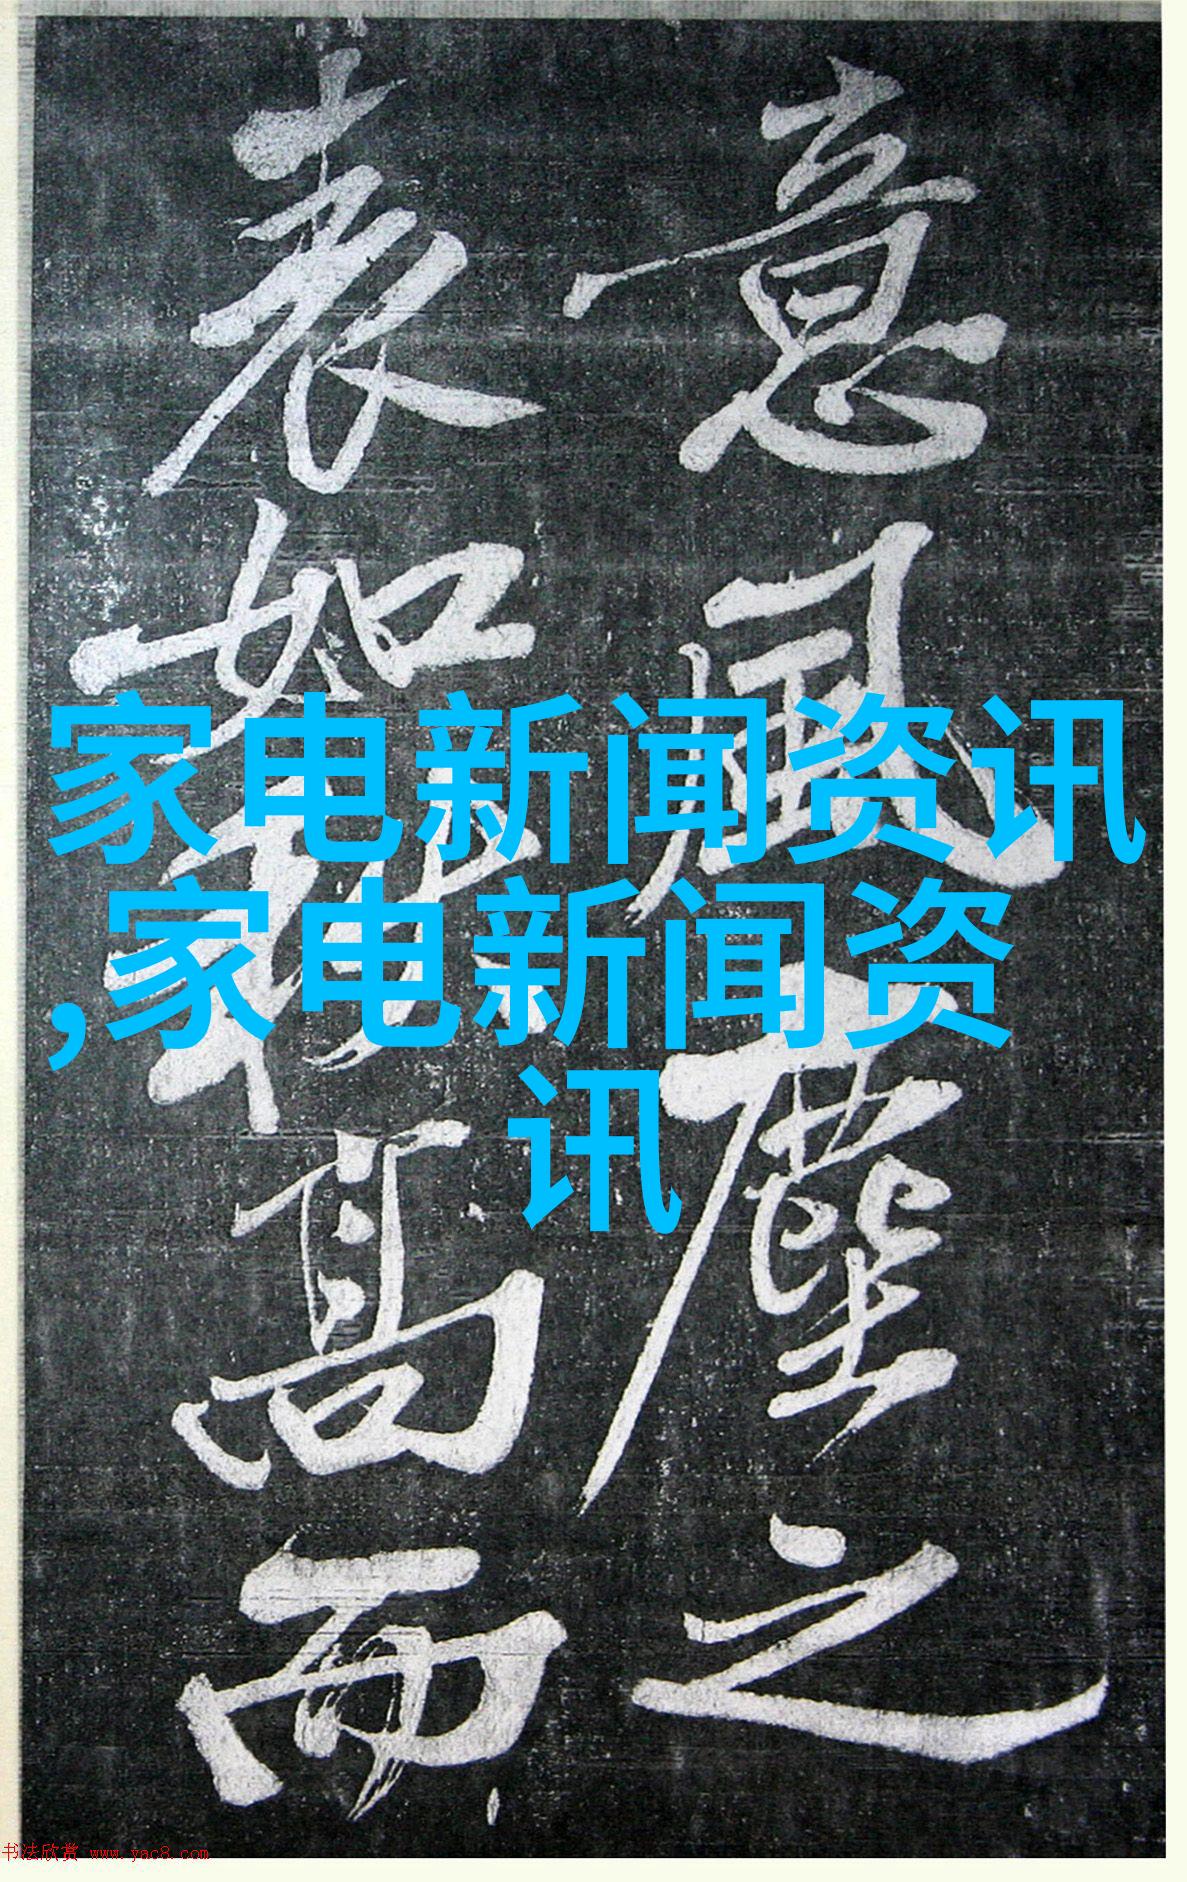 意風塵之
表如高而
家电新闻资讯
,家电新闻资
讯
书法欣赏 www.yac8.com